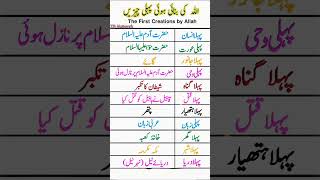 اللہ کی بنائی ہوئی پہلی چیزیں
The First Creations by Allah
پہلا انسان حضرت آدم علیہ السلام
پہلی عورت حضرت حوا علیہا السلام
پہلا جانور گائے
پہلی وحی حضرت آدم علیہ السلام پر نازل ہوئی
پہلا گناہ شیطان کا تکبر
پہلا قتل قابیل نے ہابیل کو قتل کیا
پہلا ہتھیار پتھر
پہلی زبان عربی زبان
پہلا گھر خانہ کعبہ
پہلا شہر مکہ مکرمہ
پہلا دریا دریائے نیل (نہر نیل)
پہلی وحی
حضرت آدم علیہ السلام پر نازل ہوئی
پہلا گناہ
پہلا قتل
پہلا ہتھیار